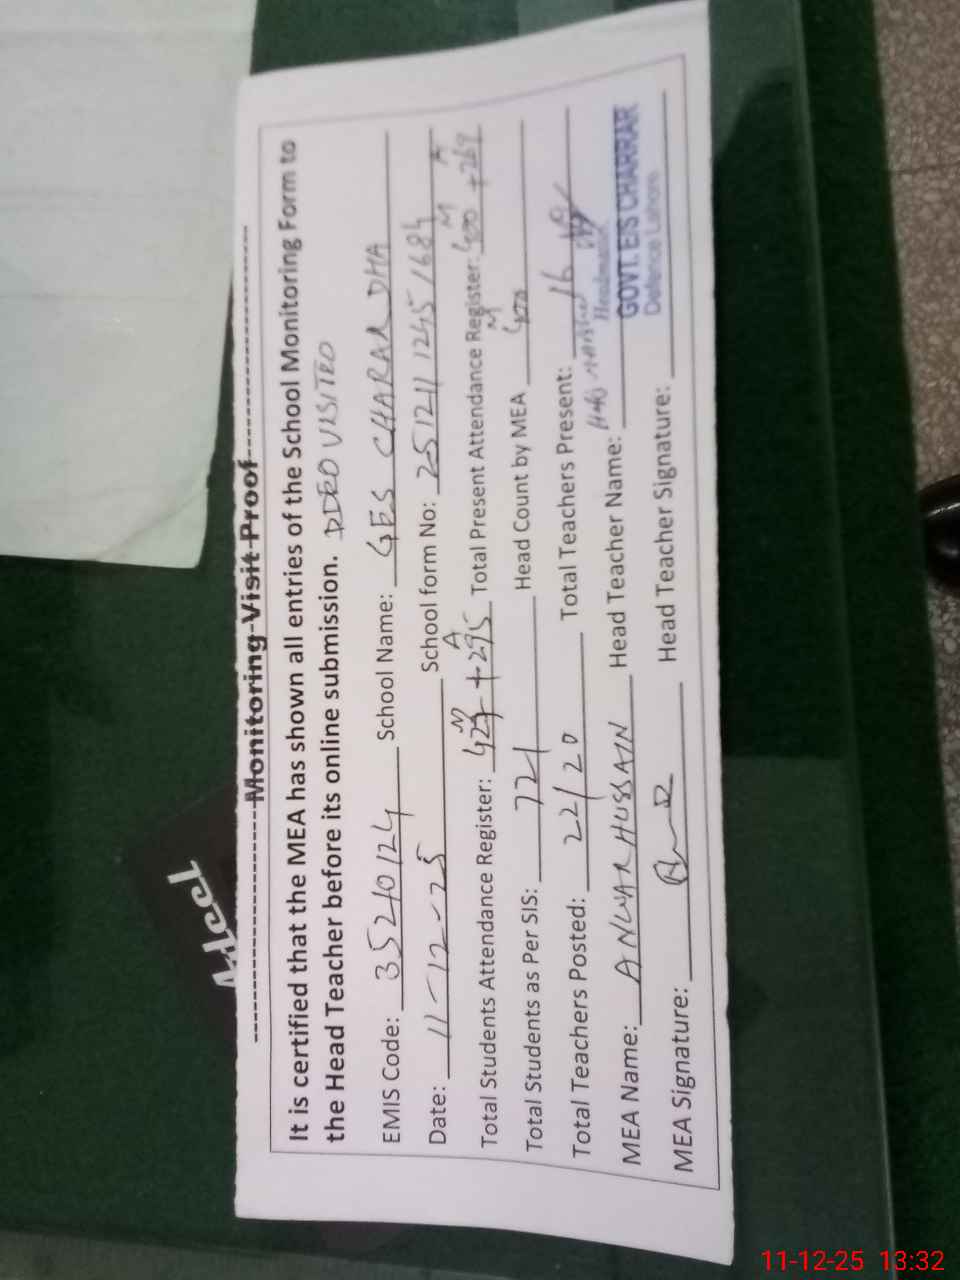 Monitoring Visit Proof
It is certified that the MEA has shown all entries of the School Monitoring Form to
the Head Teacher before its online submission. DDEO VISITED
EMIS Code: 35210124 School Name: GES CHARAR DHA
Date: 11-12-25 School form No: 25121112451684
Total Students Attendance Register: 427 M + 295 A Total Present Attendance Register: 400 M + 269 A
Total Students as Per SIS: 721 Head Count by MEA 400 M
Total Teachers Posted: 22/20 Total Teachers Present: 16
MEA Name: ANWAR HUSSAIN Head Teacher Name:
Headmaster
GOVT. E/S CHARRAR
Defence Lahore
MEA Signature: Head Teacher Signature:
11-12-25 13:32